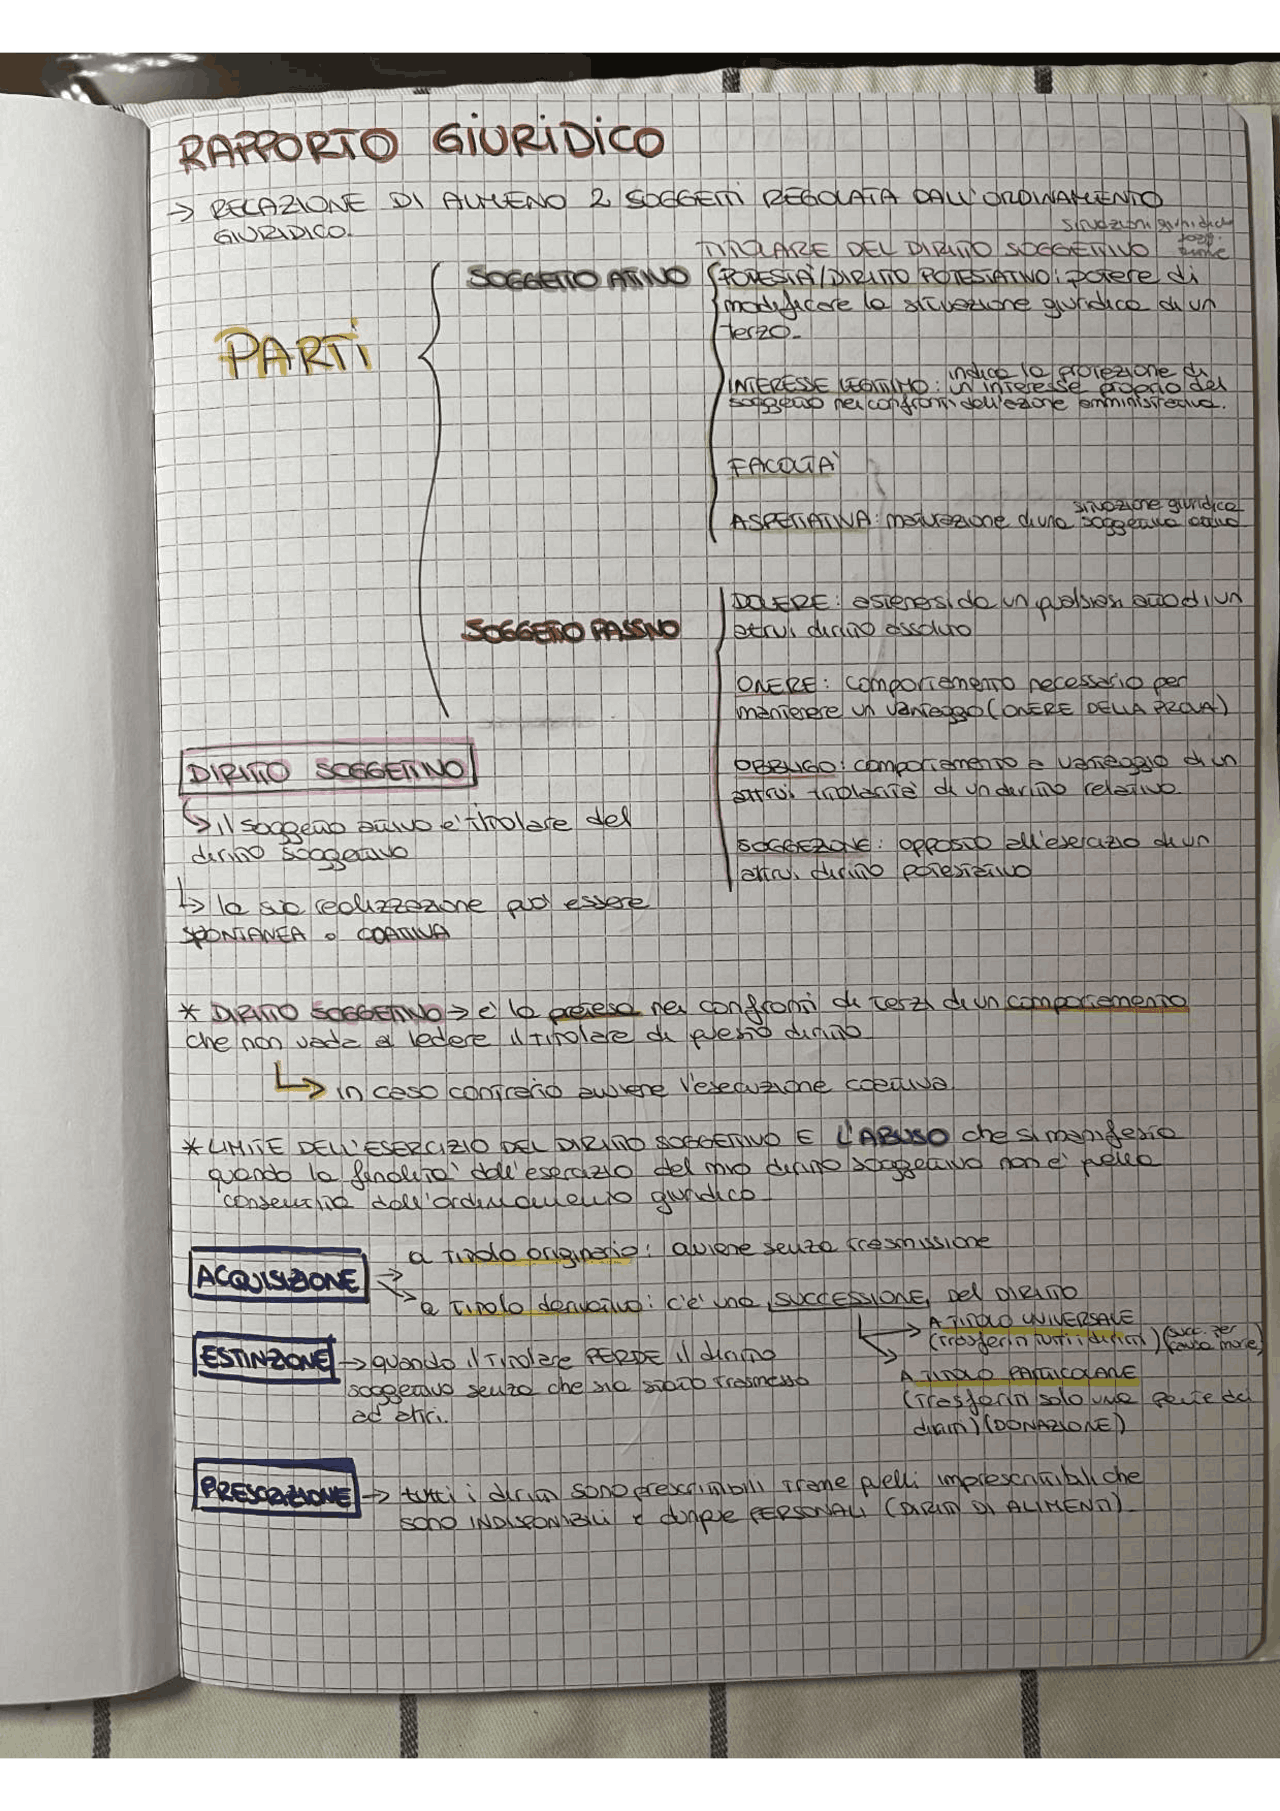 RAPPORTO GIURIDICO
→ RELAZIONE DI ALMENO 2 SOGGETTI REGOLATA DALL'ORDINAMENTO
GIURIDICO.
situazioni giuridiche
TITOLARE DEL DIRITTO SOGGETTIVO
PARTI
SOGGETTO ATTIVO
POTESTA'/DIRITTO POTESTATIVO: potere di
modificare la situazione giuridica di un
terzo.
INTERESSE LEGITTIMO: indica la protezione di
un interesse proprio del
soggetto nei confronti dell'azione amministrativa.
FACOLTA'
ASPETTATIVA: maturazione di una situazione giuridica
soggettiva attiva
SOGGETTO PASSIVO
DOVERE: astenersi da un qualsiasi atto di un
altrui diritto assoluto
ONERE: comportamento necessario per
mantenere un vantaggio (ONERE DELLA PROVA)
OBBLIGO: comportamento a vantaggio di un
altrui titolarità di un diritto relativo
SOGGEZIONE: opposto all'esercizio di un
altrui diritto potestativo
DIRITTO SOGGETTIVO
↳ il soggetto attivo e' titolare del
diritto soggettivo
↳ la sua realizzazione può essere
SPONTANEA o COATTIVA
* DIRITTO SOGGETTIVO → e' la pretesa nei confronti di terzi di un comportamento
che non vada a ledere il titolare di questo diritto
↳ in caso contrario avviene l'esecuzione coattiva
* LIMITE DELL'ESERCIZIO DEL DIRITTO SOGGETTIVO E L'ABUSO che si manifesta
quando la finalita' dell'esercizio del mio diritto soggettivo non e' quella
consentita dall'ordinamento giuridico
ACQUISIZIONE
a titolo originario: avviene senza trasmissione
a titolo derivativo: c'e' una SUCCESSIONE DEL DIRITTO
A TITOLO UNIVERSALE
(trasferiti tutti i diritti) (succ. per
causa morte)
A TITOLO PARTICOLARE
(trasferiti solo una parte dei
diritti) (DONAZIONE)
ESTINZIONE → quando il titolare PERDE il diritto
soggettivo senza che sia stato trasmesso
ad altri.
PRESCRIZIONE → tutti i diritti sono prescrittibili trame quelli imprescrittibili che
sono INDISPONIBILI e dunque PERSONALI (DIRITTI DI ALIMENTI)